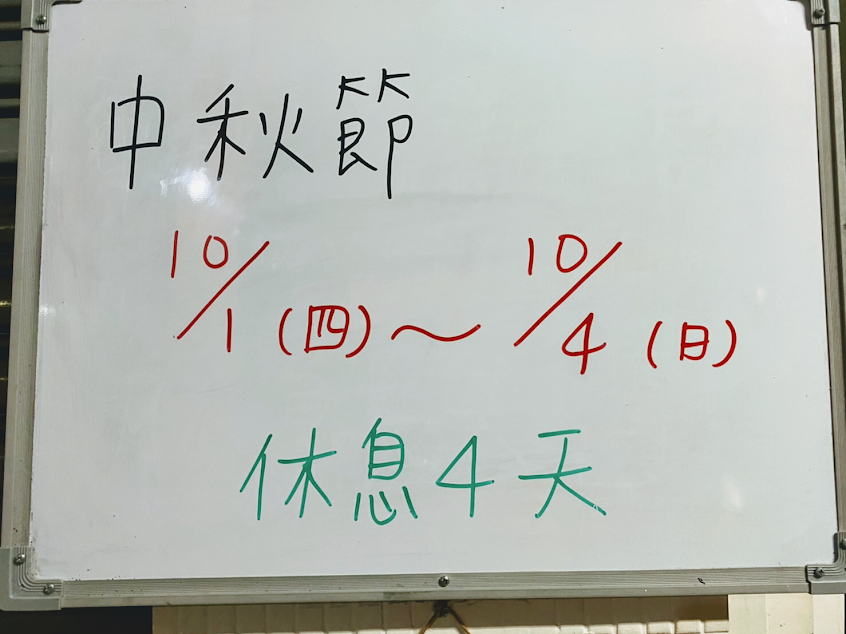 中秋節
10/1(四)~10/4(日)
休息4天